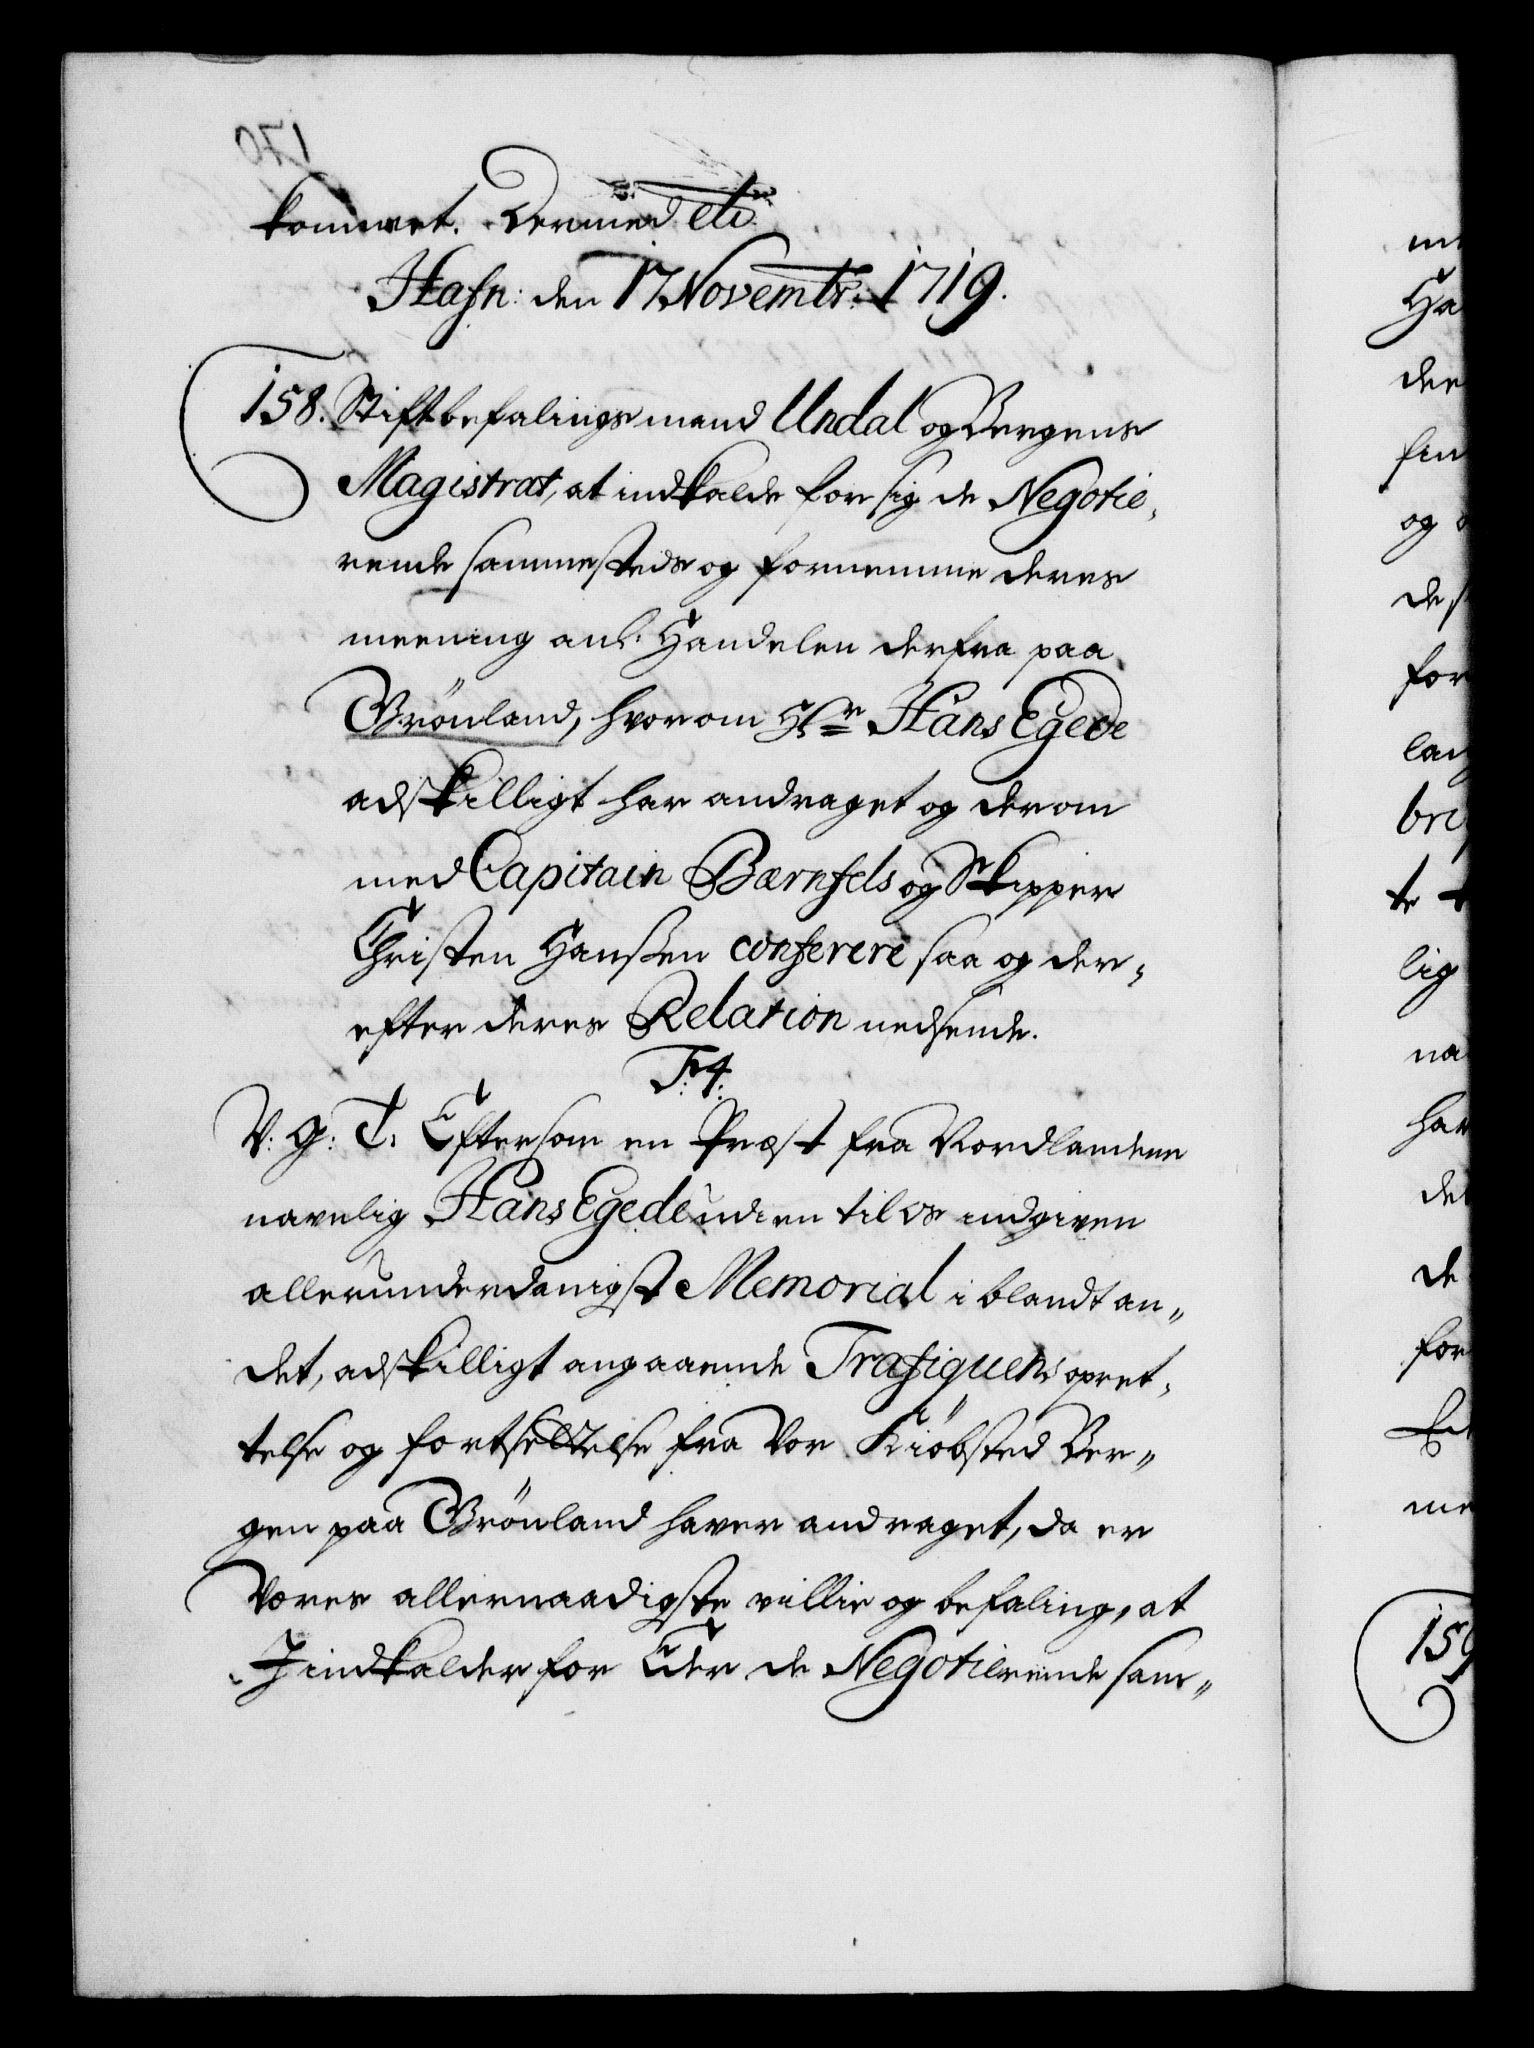 kommet. Dermed etc
Hafn: den 17 Novembr: 1719.
158. Stiftbefalingsmand Undal og Bergens
Magistrat, at indkalde for sig de Negotie-
rende sammesteds og fornemme deres
meening anl. Handelen derfra paa
Grönland, hvorom Hr Hans Egede
adskilligt har andraget og derom
med Capitain Bærnfels og Skipper
Christen Hanßen conferere saa og der-
efter deres Relation nedsende.
F: 4:
V: G: T: Eftersom en Præst fra Nordlandene
navnlig Hans Egede udi en til os indgiven
allerunderdanigst Memorial i blandt an-
det, adskilligt angaaende Trafiquens opret-
telse og fortsettelse fra Vor Kiöbsted Ber-
gen paa Grönland haver andraget, da er
Vores allernaadigste villie og befaling, at
I indkalder for Eder de Negotierende sam-
me
Ha
der
fin
og
des
for
lan
bri
te
lig
na
har
det
de
for
me
159